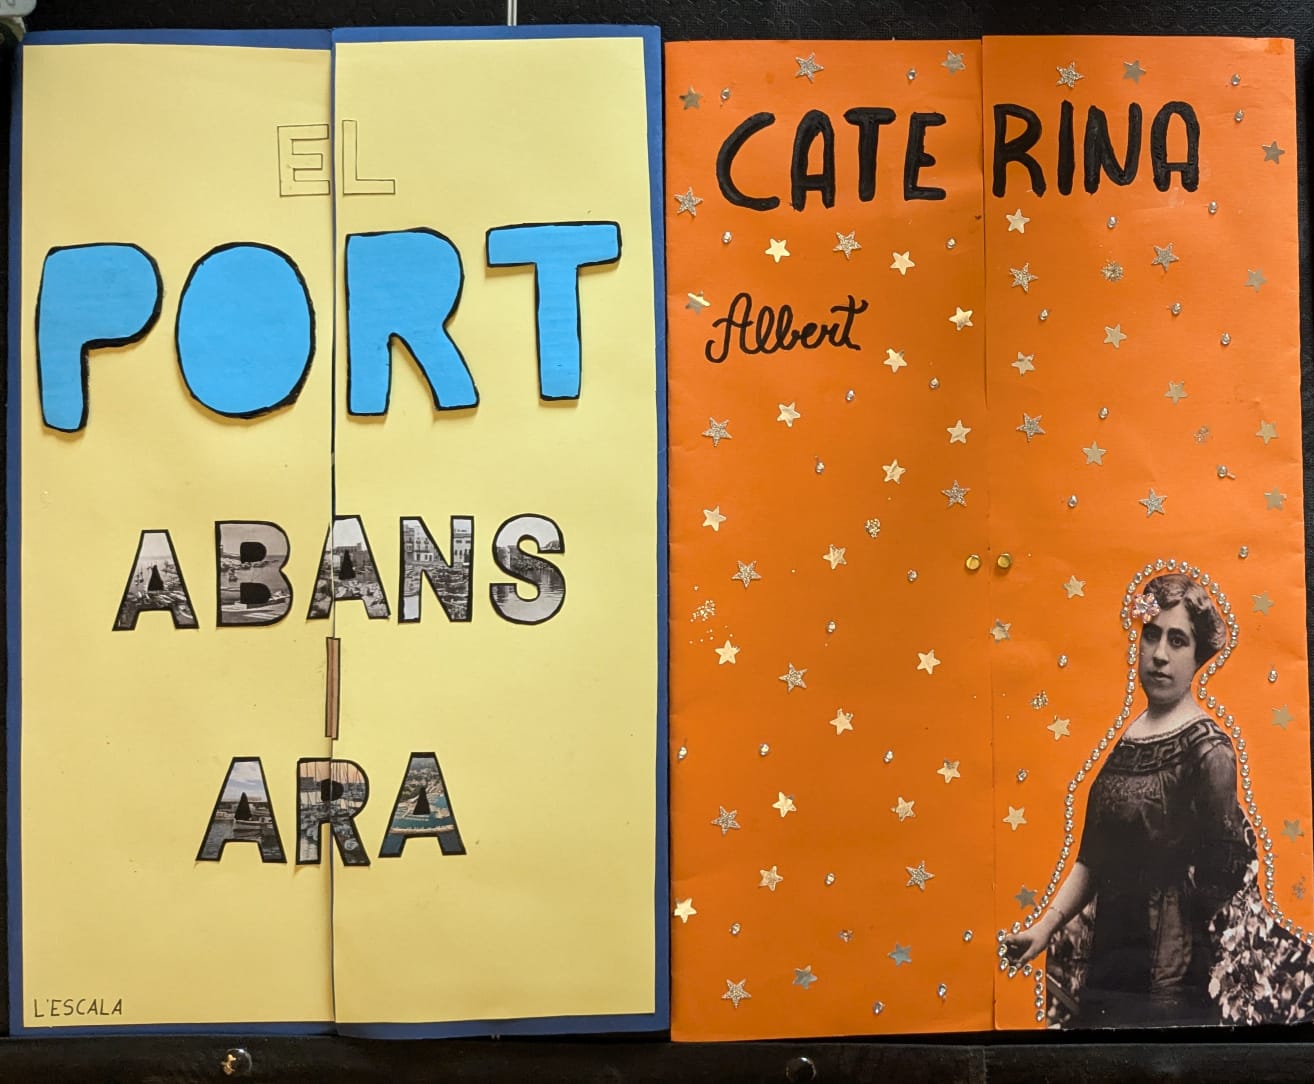 EL
PORT
ABANS
I
ARA
L'ESCALA
CATERINA
Albert